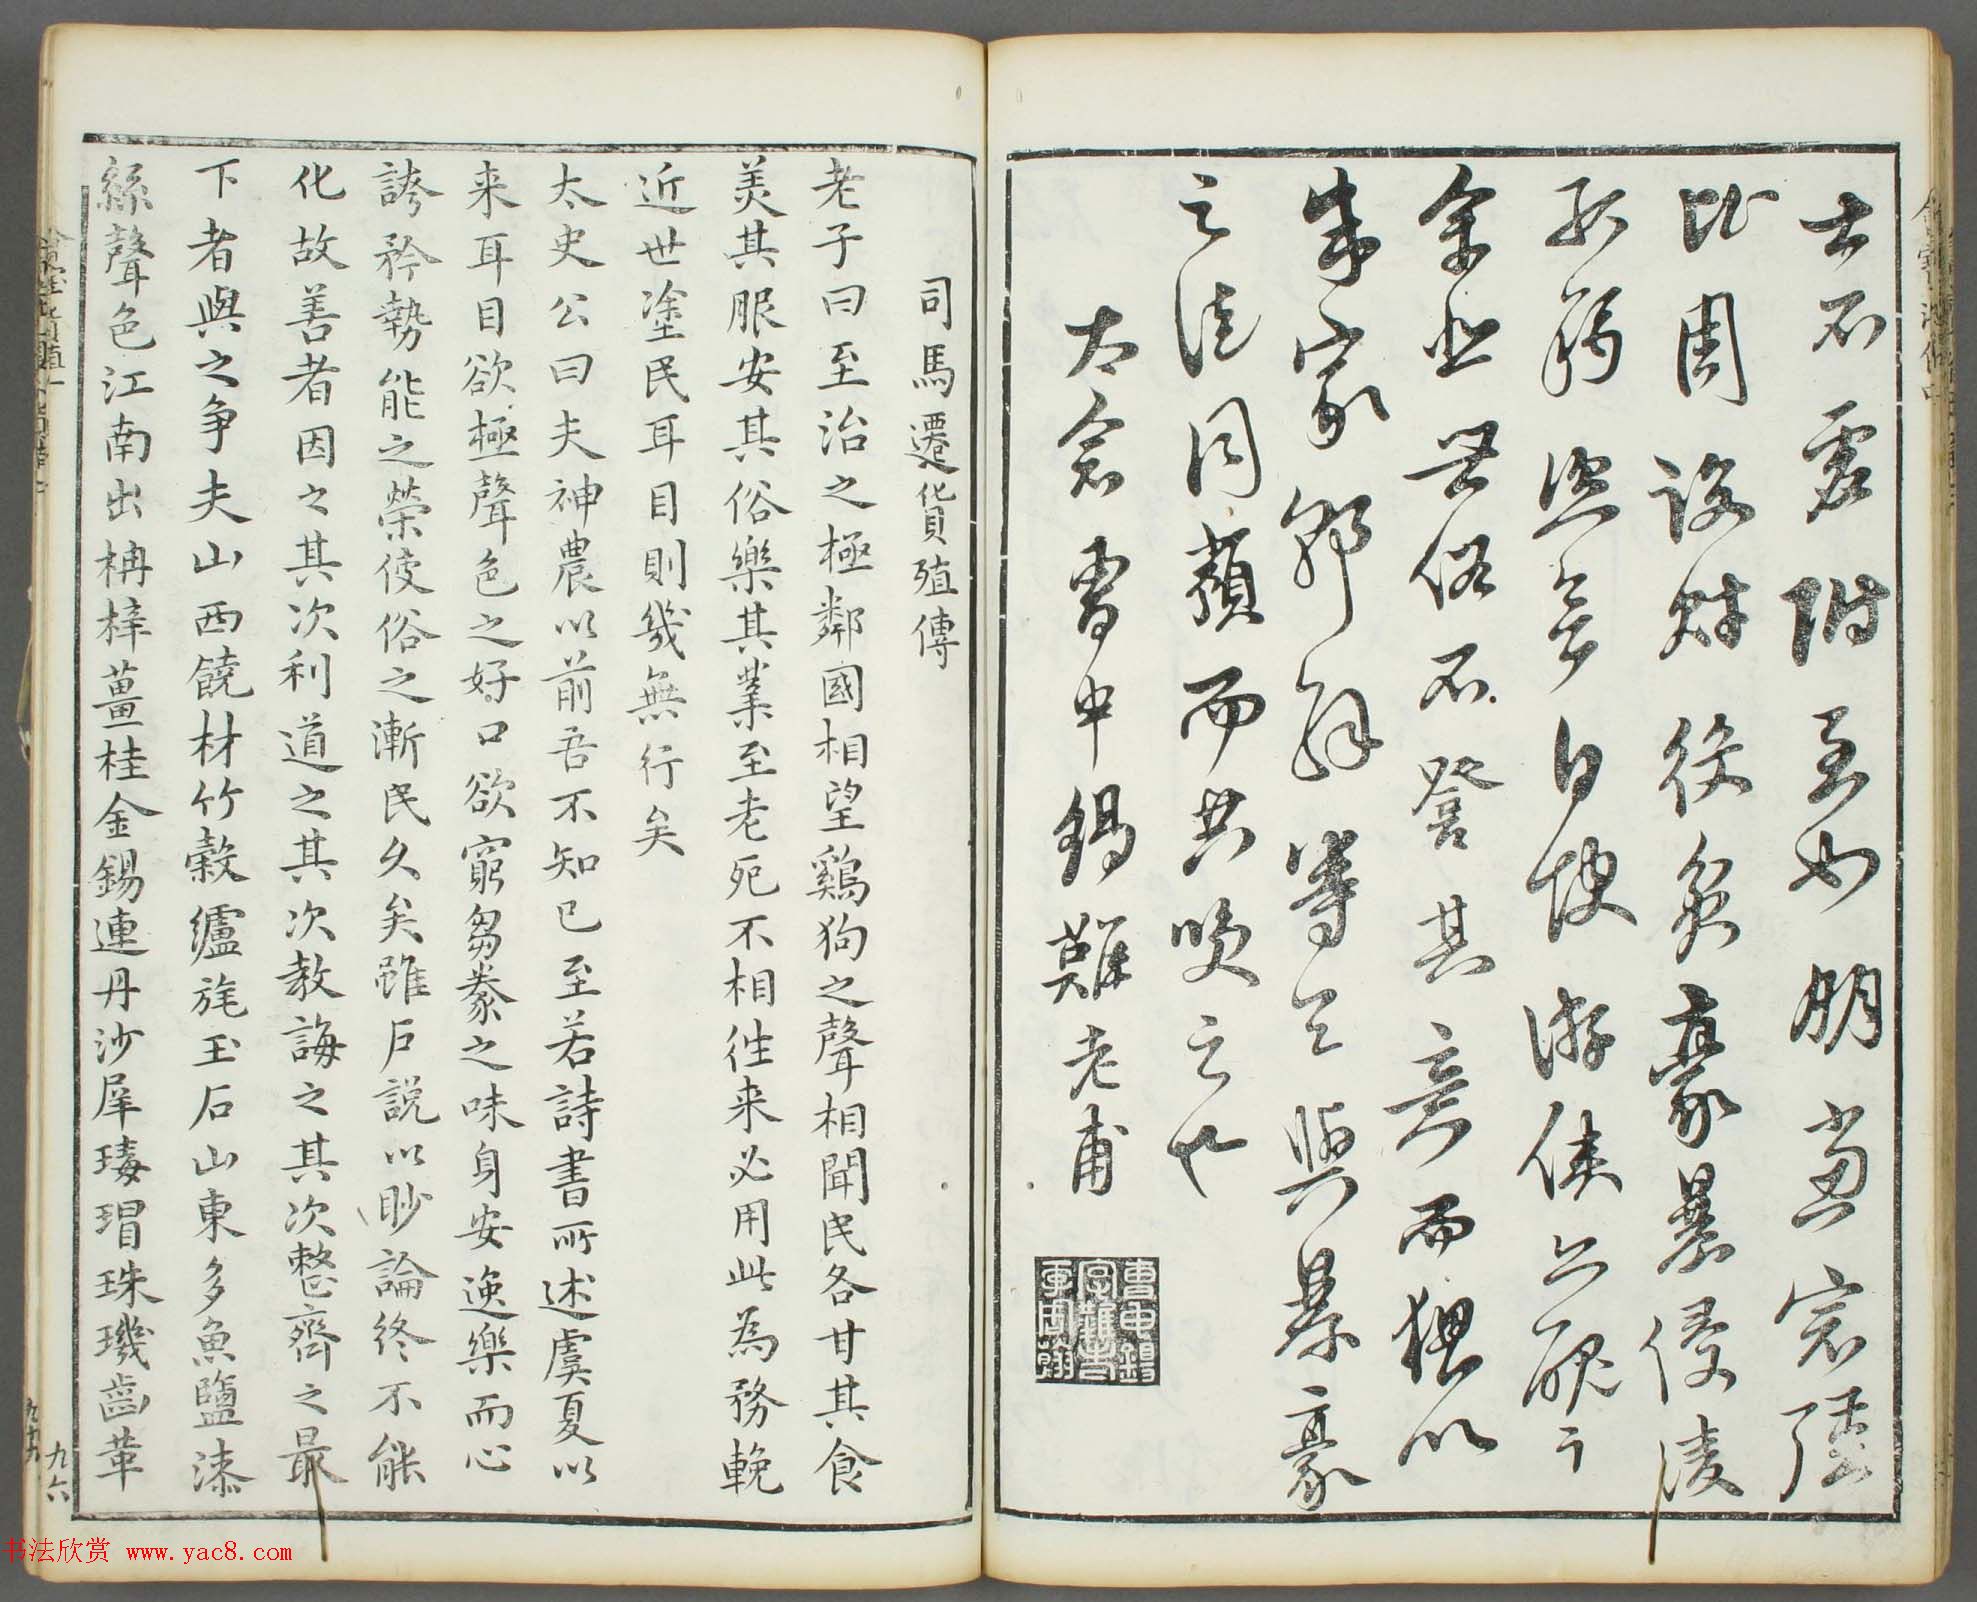 士不虛附至如朋黨宗彊
比周設財役貧豪暴侵凌
孤弱恣欲自快游俠亦醜之
余悲世俗不詧其意而猥以
朱家郭解等令與暴豪
之徒同類而共笑之也
司馬遷貨殖傳
老子曰至治之極鄰國相望鷄狗之聲相聞民各甘其食
美其服安其俗樂其業至老死不相往来必用此為務輓
近世塗民耳目則幾無行矣
太史公曰夫神農以前吾不知已至若詩書所述虞夏以
来耳目欲極聲色之好口欲窮芻豢之味身安逸樂而心
誇矜勢能之榮使俗之漸民久矣雖戶說以眇論終不能
化故善者因之其次利道之其次教誨之其次整齊之最
下者與之爭夫山西饒材竹穀纑旄玉石山東多魚鹽漆
絲聲色江南出枏梓薑桂金錫連丹沙犀瑇瑁珠璣齒革
九六
书法欣赏 www.yac8.com